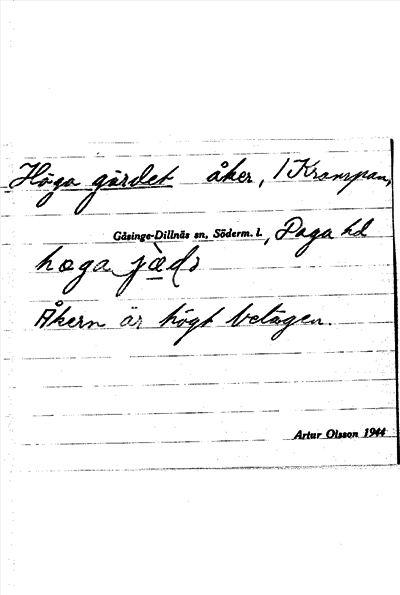 Höga gärdet åker, 1 Krampan,
Gåsinge-Dillnäs sn, Söderm. l., Daga hd
Åkern är högt belägen.
Artur Olsson 1944